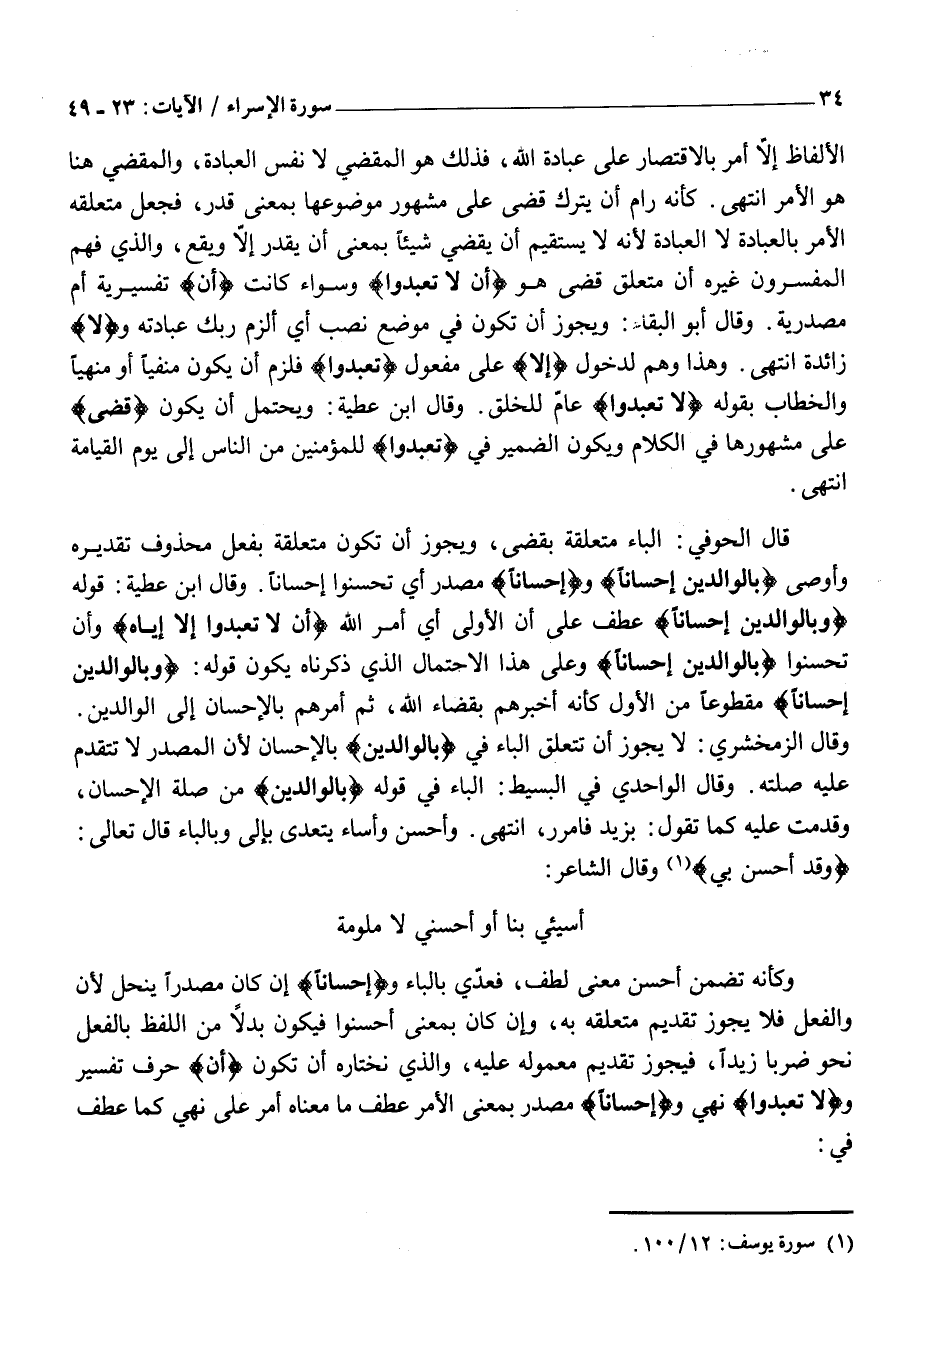 ٣٤ سورة الإسراء / الآيات: ٢٣ - ٤٩
الألفاظ إلّا أمر بالاقتصار على عبادة الله، فذلك هو المقضي لا نفس العبادة، والمقضي هنا
هو الأمر انتهى. كأنه رام أن يترك قضى على مشهور موضوعها بمعنى قدر، فجعل متعلقه
الأمر بالعبادة لا العبادة لأنه لا يستقيم أن يقضي شيئاً بمعنى أن يقدر إلّا ويقع، والذي فهم
المفسرون غيره أن متعلق قضى هو ﴿أن لا تعبدوا﴾ وسواء كانت ﴿أن﴾ تفسيرية أم
مصدرية. وقال أبو البقاء: ويجوز أن تكون في موضع نصب أي ألزم ربك عبادته و﴿لا﴾
زائدة انتهى. وهذا وهم لدخول ﴿إلا﴾ على مفعول ﴿تعبدوا﴾ فلزم أن يكون منفياً أو منهياً
والخطاب بقوله ﴿لا تعبدوا﴾ عامّ للخلق. وقال ابن عطية: ويحتمل أن يكون ﴿قضى﴾
على مشهورها في الكلام ويكون الضمير في ﴿تعبدوا﴾ للمؤمنين من الناس إلى يوم القيامة
انتهى.
قال الحوفي: الباء متعلقة بقضى، ويجوز أن تكون متعلقة بفعل محذوف تقديره
وأوصى ﴿بالوالدين إحساناً﴾ و﴿إحساناً﴾ مصدر أي تحسنوا إحساناً. وقال ابن عطية: قوله
﴿وبالوالدين إحساناً﴾ عطف على أن الأولى أي أمر الله ﴿أن لا تعبدوا إلا إياه﴾ وأن
تحسنوا ﴿بالوالدين إحساناً﴾ وعلى هذا الاحتمال الذي ذكرناه يكون قوله: ﴿وبالوالدين
إحساناً﴾ مقطوعاً من الأول كأنه أخبرهم بقضاء الله، ثم أمرهم بالإحسان إلى الوالدين.
وقال الزمخشري: لا يجوز أن تتعلق الباء في ﴿بالوالدين﴾ بالإحسان لأن المصدر لا تتقدم
عليه صلته. وقال الواحدي في البسيط: الباء في قوله ﴿بالوالدين﴾ من صلة الإحسان،
وقدمت عليه كما تقول: بزيد فامرر، انتهى. وأحسن وأساء يتعدى بإلى وبالباء قال تعالى:
﴿وقد أحسن بي﴾(١) وقال الشاعر:
أسيئي بنا أو أحسني لا ملومة
وكأنه تضمن أحسن معنى لطف، فعدّي بالباء و﴿إحساناً﴾ إن كان مصدراً ينحل لأن
والفعل فلا يجوز تقديم متعلقه به، وإن كان بمعنى أحسنوا فيكون بدلاً من اللفظ بالفعل
نحو ضربا زيداً، فيجوز تقديم معموله عليه، والذي نختاره أن تكون ﴿أن﴾ حرف تفسير
و﴿لا تعبدوا﴾ نهي و﴿إحساناً﴾ مصدر بمعنى الأمر عطف ما معناه أمر على نهي كما عطف
في:
(١) سورة يوسف: ١٢/ ١٠٠.